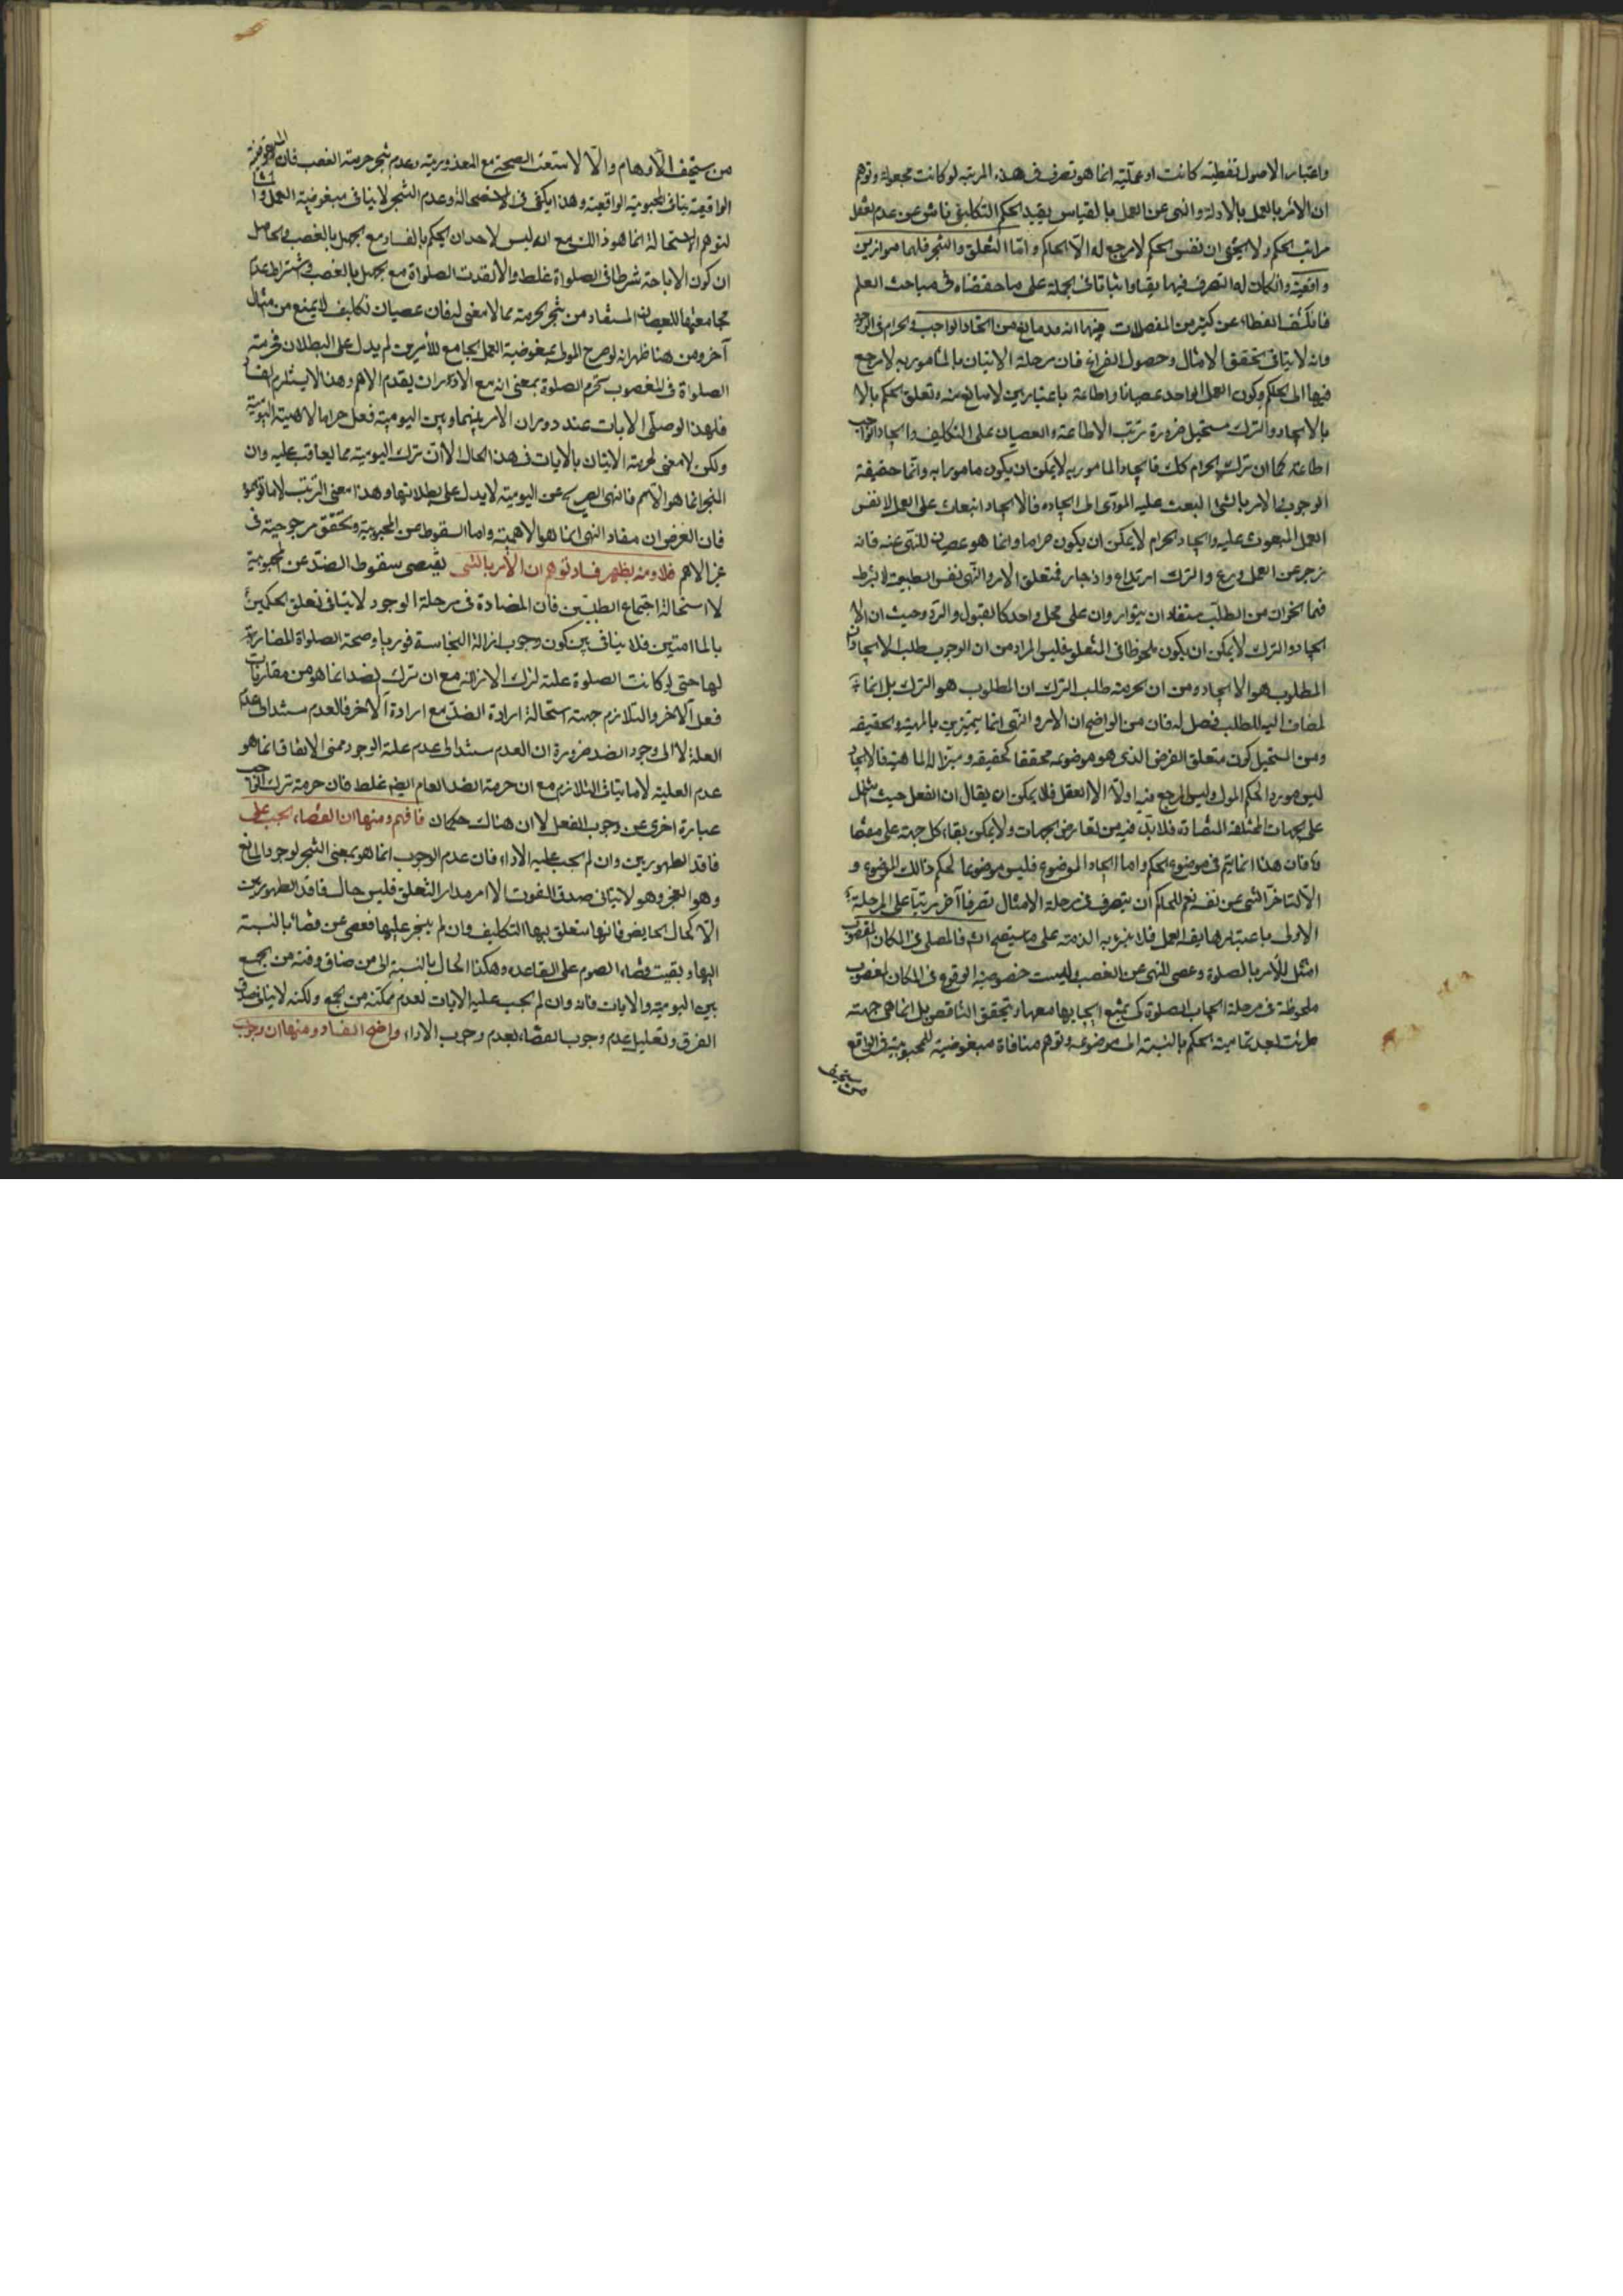 واعتبار الاصول لفظية كانت او عملية انما هو تصرف فى هذه المرتبه لو كانت مجعولة وتوهم
ان الامر بالعمل بالادلة والنهى عن العمل بالقياس يقيد الحكم التكليفى ناش عن عدم تعقل
مراتب الحكم ولا يخفى ان نفس الحكم لا مرجع له الّا الحاكم وامّا التعلق والتنجز فلهما موازين
واقعية وان كان له التصرف فيها نفيا واثباتا فى الجملة على ما حققناه فى مباحث العلم
فانكشف الغطاء عن كثير من المعضلات منها انه لا مانع من اتحاد الواجب والحرام فى الوجود
وانه لا ينافى تحقق الامتثال وحصول الفراغ فان مرحلة الاتيان بالمامور به لا مرجع
فيها الى الحاكم وكون العمل الواحد عصيانا واطاعة باعتبارين لا مانع منه وتعلق الحكم بالا
بالايجاد والترك مستحيل ضرورة ترتب الاطاعة والعصيان على التكليف وايجاد الواجب
اطاعة كما ان ترك الحرام كك فايجاد المامور به لا يمكن ان يكون مامورا به وانما حقيقة
الوجوب والامر بالشئ البعث عليه المؤدى الى ايجاده فالايجاد انبعاث على العمل لا نفس
العمل المبعوث عليه وايجاد الحرام لا يمكن ان يكون حراما وانما هو عصيان للنهى عنه فانه
زجر عن العمل وردع والترك ارتداع وازدجار فمتعلق الامر والنهى نفس الطبيعة لا بشرط
فهما نحوان من الطلب متضادان يتواردان على محل واحد كالقبول والرد وحيث ان الا
ايجاد والترك لا يمكن ان يكون ملحوظا فى المتعلق فليس المراد من ان الوجوب طلب الايجاد ان
المطلوب هو الايجاد ومن ان الحرمة طلب الترك ان المطلوب هو الترك بل انما
لمضاف اليه للطلب فصل له فان من الواضح ان الامر والنهى انما يتميزين بالمهية والحقيقه
ومن المستحيل كون متعلق الغرض الذى هو موضوعه محققا لحقيقه ومميزا له لماهيته فالايجاد
ليس موردا لحكم المولى وليس المرجع فيه اولا الّا العقل فلا يمكن ان يقال ان الفعل حيث اشتمل
على الجهات المختلفة المتضادة فلا بد فيه من تعارض الجهات ولا يمكن بقاء كل جهة على مقتضا
ها فان هذا انما يتم فى موضوع الحكم واما ايجاد الموضوع فليس موضوعا لحكم ذالك الموضوع و
الّا لتاخر الشى عن نفسه نعم للحاكم ان يتصرف فى مرحلة الامتثال تصرفا آخر مرتبا على المرحلة
الاولى باعتبارها بقاء العمل فلا تبرء به الذمة على ما سيتضح انش فالمصلى فى المكان المغصوب
امتثل للامر بالصلوة وعصى للنهى عن الغصب وليست خصوصية الوقوع فى المكان المغصوب
ملحوظة فى مرحلة ايجاب الصلوة كى يمتنع ايجابها معها ويتحقق التناقض بل انما هى جهته
طرئت بعد تمامية الحكم بالنسبة الى موضوعه وتوهم منافاة مبغوضية للمحبوبية فى الواقع
من سخيف
من سخيف الاوهام والّا لامتنعت الصحة مع المعذورية وعدم تنجز حرمة الغصب فان المبغوضية
الواقعية ينافى المحبوبية الواقعية وهذا يكفى فى الاستحالة وعدم التنجز لا ينافى مبغوضية العمل
لتوهم الاستحالة انما هو ذالك مع انه ليس لاحد ان يحكم بالفساد مع الجهل بالغصب والحاصل
ان كون الاباحة شرطا فى الصلواة غلط والّا لفسدت الصلواة مع الجهل بالغصب واشتراط عدم
مجامعتها للعصيان المستفاد من تنجز الحرمة مما لا معنى له فان عصيان تكليف لا يمنع من امتثال
آخر ومن هنا ظهر انه لو صرح المولى بمبغوضية العمل الجامع للامرين لم يدل على البطلان فحرمة
الصلواة فى المغصوب تحرم الصلوة بمعنى انه مع الدوران يقدم الاهم وهذا لا يستلزم الفساد
فلهذا لو صلى الايات عند دوران الامر بينهما وبين اليومية فعل حراما لاهمية اليومية
ولكن لا معنى لحرمة الاتيان بالايات فى هذا الحال الّا ان ترك اليومية مما يعاقب عليه وان
المنجز انما هو الاهم فالنهى الصريح عن اليومية لا يدل على بطلانها وهذا معنى الترتب لا ما توهموه
فان الغرض ان مفاد النهى انما هو الاهمية واما السقوط عن المحبوبية وتحقق مرجوحية فى
غير الاهم فلا ومنه يظهر فساد توهم ان الامر بالشى يقتضى سقوط الضد عن المحبوبية
لا استحالة اجتماع الطلبين فان المضادة فى مرحلة الوجود لا ينافى تعلق الحكمين
بالماهيتين فلا ينافى بين كون وجوب ازالة النجاسة فوريا وصحة الصلواة المضادة
لها حتى لو كانت الصلوة علة لترك الازالة مع ان ترك الضد انما هو من مقارنات
فعل الآخر والتلازم جهة استحالة ارادة الضد مع ارادة الآخر فالعدم مستند الى عدم
العلة لا الى وجود الضد ضرورة ان العدم مستند الى عدم علة الوجود فمنى الاتفاق انما هو
عدم العلية لا ما ينافى التلازم مع ان حرمة الضد العام ايضا غلط فان حرمة ترك الواجب
عبارة اخرى عن وجوب الفعل لا ان هناك حكمان فافهم ومنها ان القضاء يجب على
فاقد الطهورين وان لم يجب عليه الاداء فان عدم الوجوب انما هو بمعنى التنجز لوجود المانع
وهو العجز وهو لا ينافى صدق الفوت الامر مدار التعلق فليس حال فاقد الطهورين
الّا كحال الحايض فانها متعلق بها التكليف وان لم ينجز عليها فعصى عن قضاء بالنسبة
اليها وبقيت قضاء الصوم على القاعده وهكذا الحال بالنسبة الى من ضاق وقته من الجمع
بين اليومية والايات فانه وان لم يجب عليه الايات لعدم تمكنه من الجمع ولكنه لا ينافى صدق
الفرق وتعليل عدم وجوب القضاء بعدم وجوب الاداء واضح الفساد ومنها ان وجوب